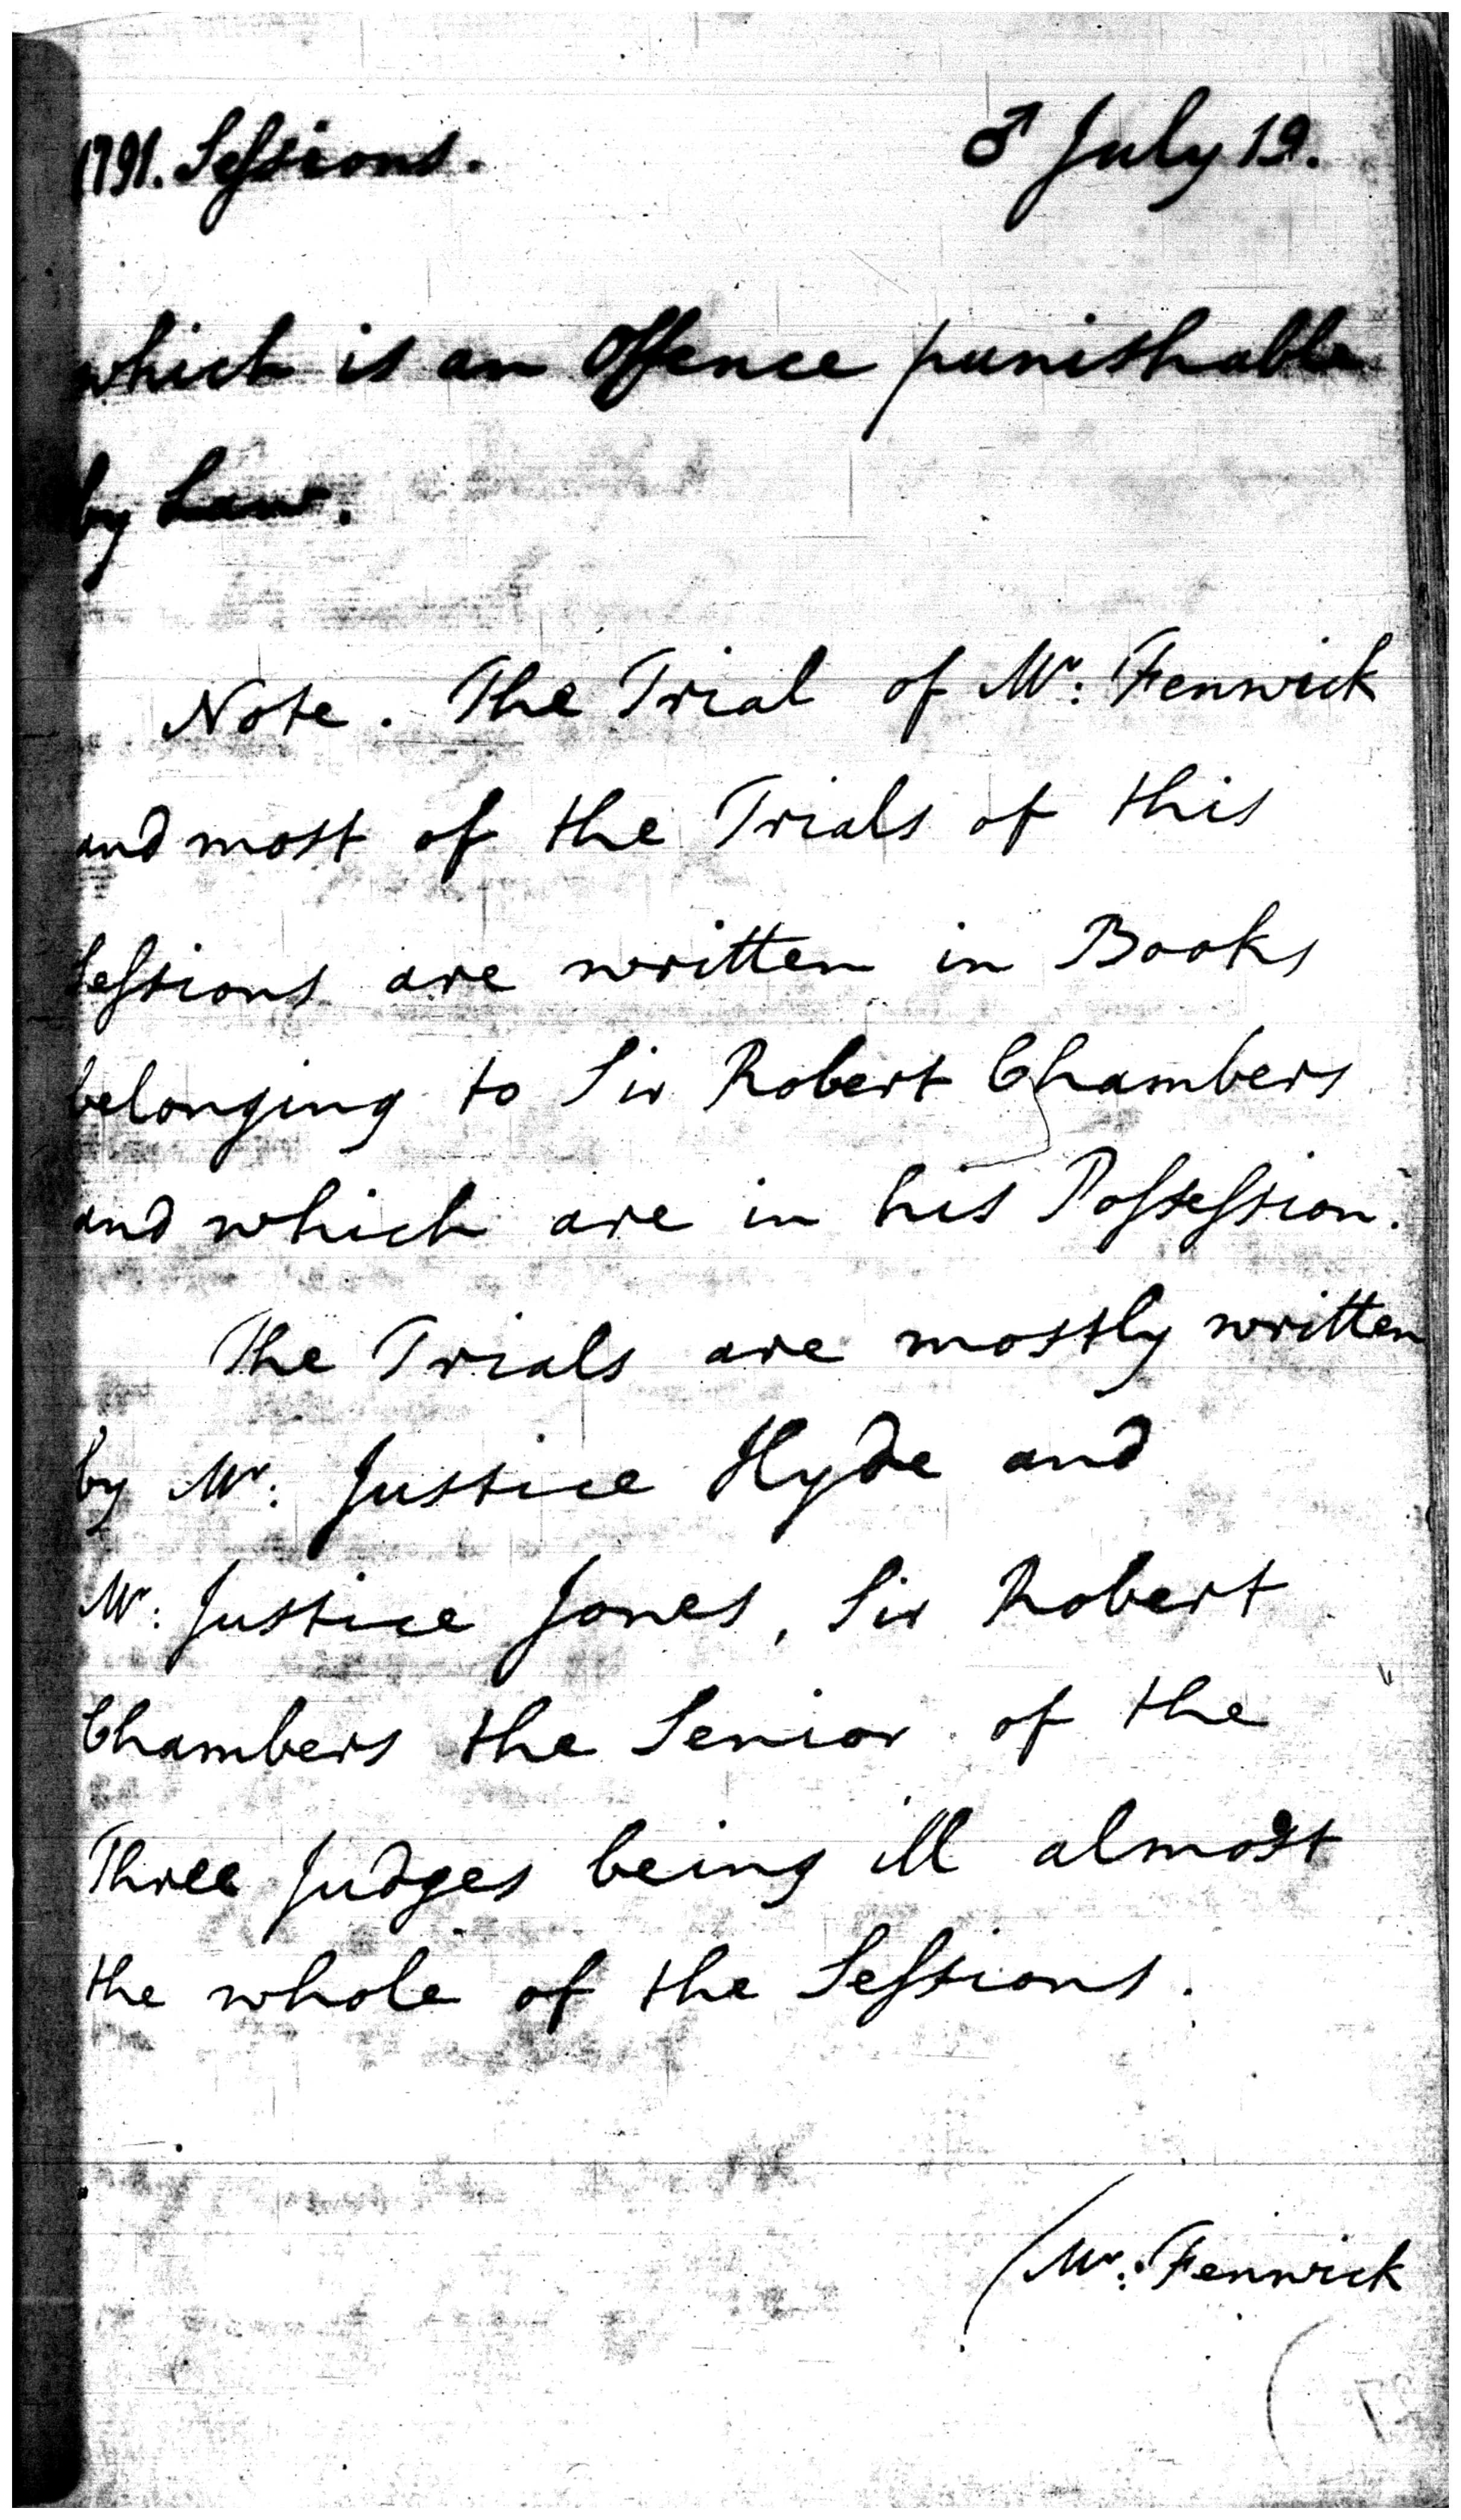 1791. Seſsions. ♂ July 19.
which is an Offence punishable
by Law.
Note. The Trial of Mr: Fenwick
and most of the Trials of this
Seſsions are written in Books
belonging to Sir Robert Chambers
and which are in his Poſseſsion.
The Trials are mostly written
by Mr: Justice Hyde and
Mr: Justice Jones, Sir Robert
Chambers the Senior of the
Three Judges being ill almost
the whole of the Seſsions.
(Mr: Fenwick